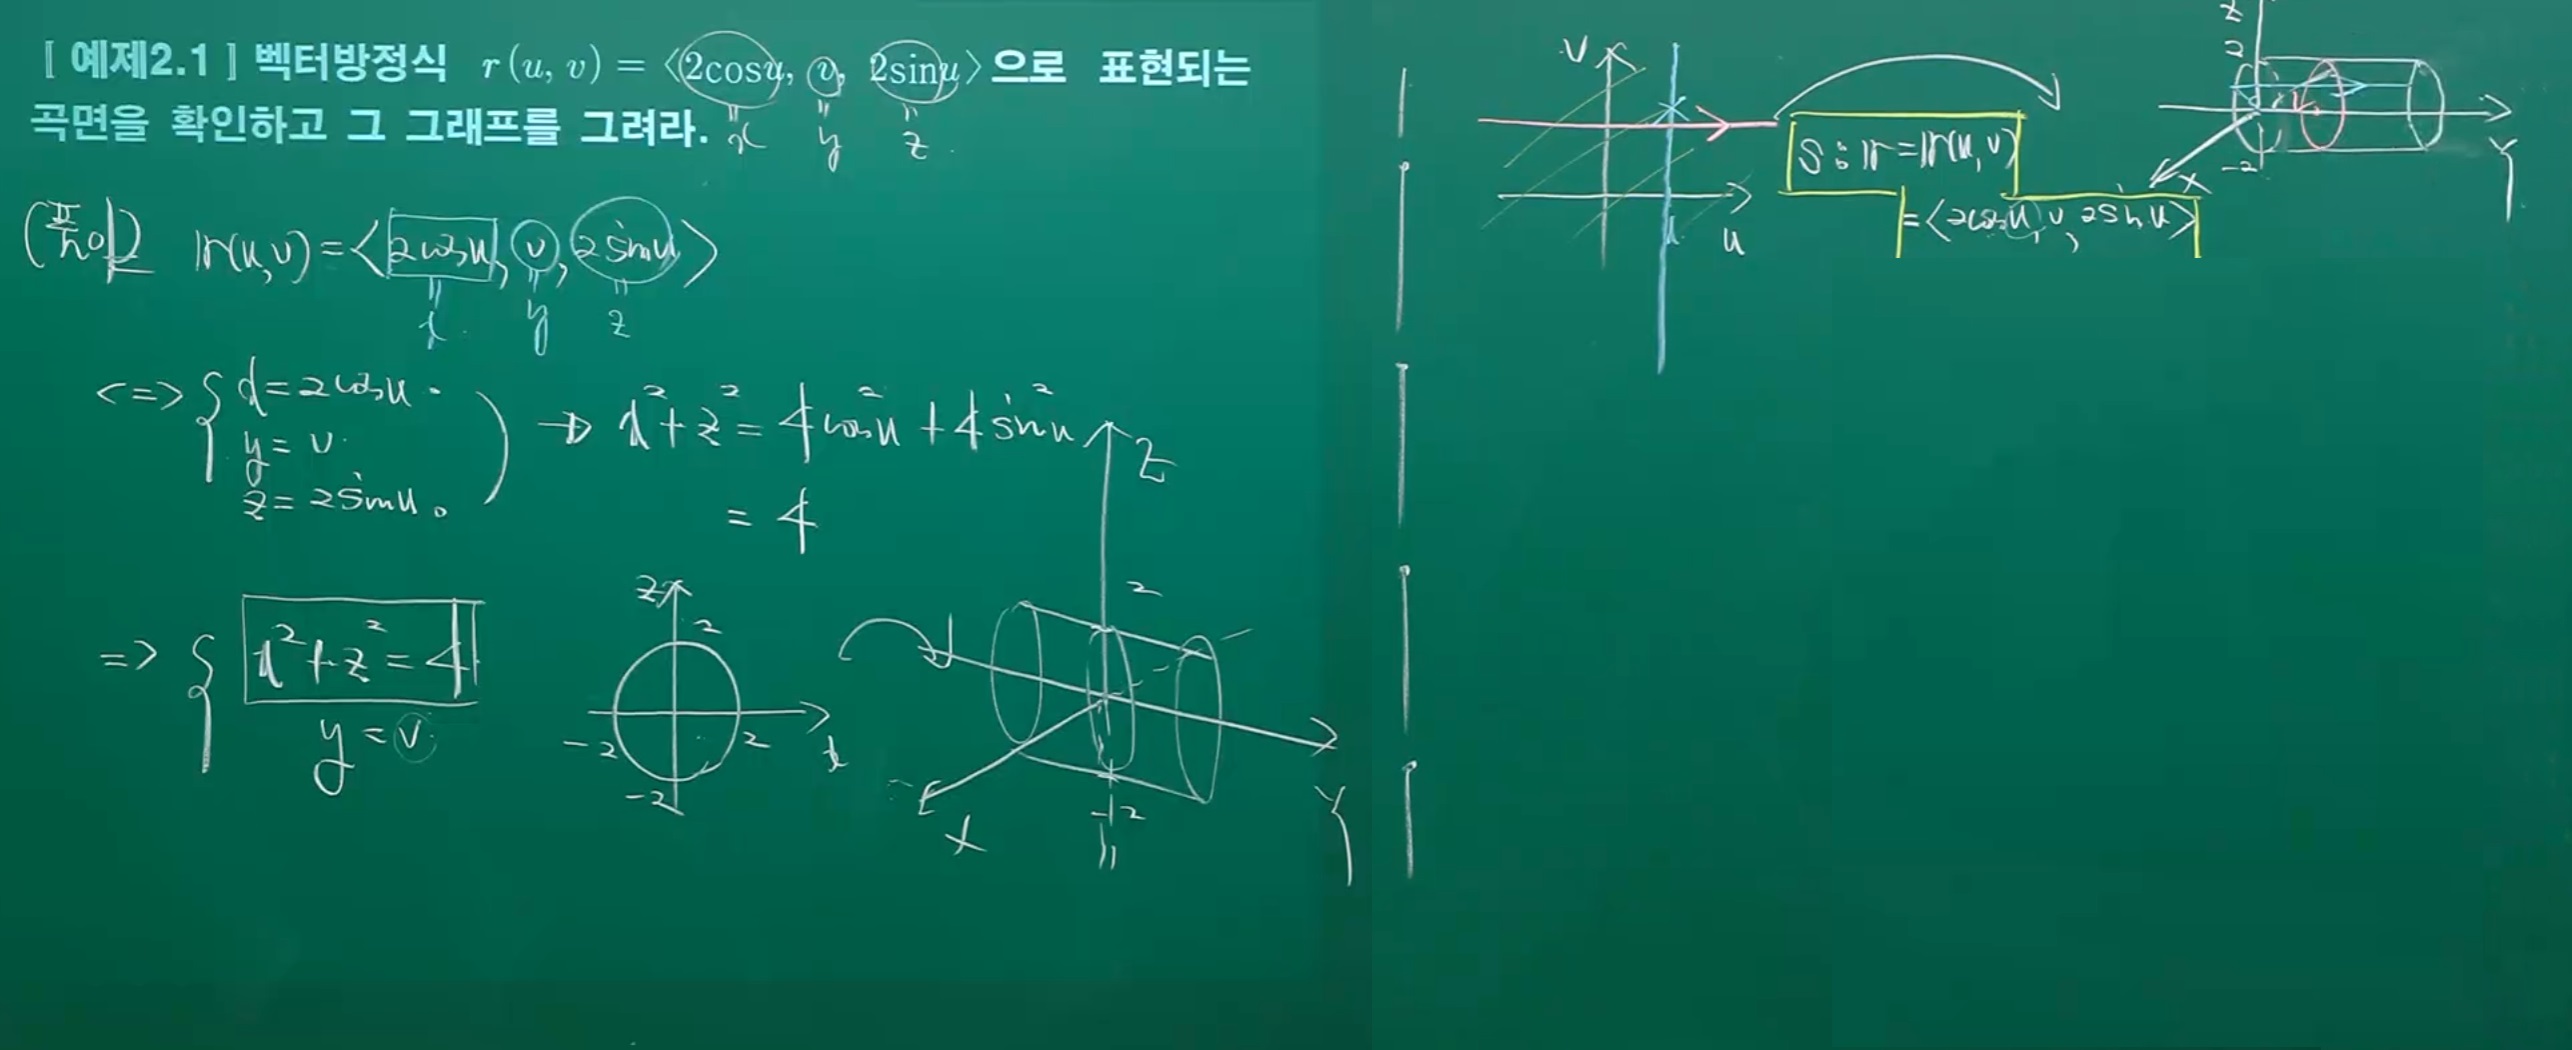 [ 예제2.1 ] 벡터방정식 r(u, v) = ⟨2cosu, v, 2sinu⟩으로 표현되는
곡면을 확인하고 그 그래프를 그려라.
= x = y = z
(풀이) r(u,v) = <2cosu, v, 2sinu>
= x = y = z
<=> { x = 2cosu
y = v
z = 2sinu
→ x² + z² = 4cos²u + 4sin²u
= 4
=> { x² + z² = 4
y = v
z 2 -2 2 x -2
Z 2 -2 X Y
v u
S : r = r(u,v)
= <2cosu, v, 2sinu>
z 2 -2 x Y